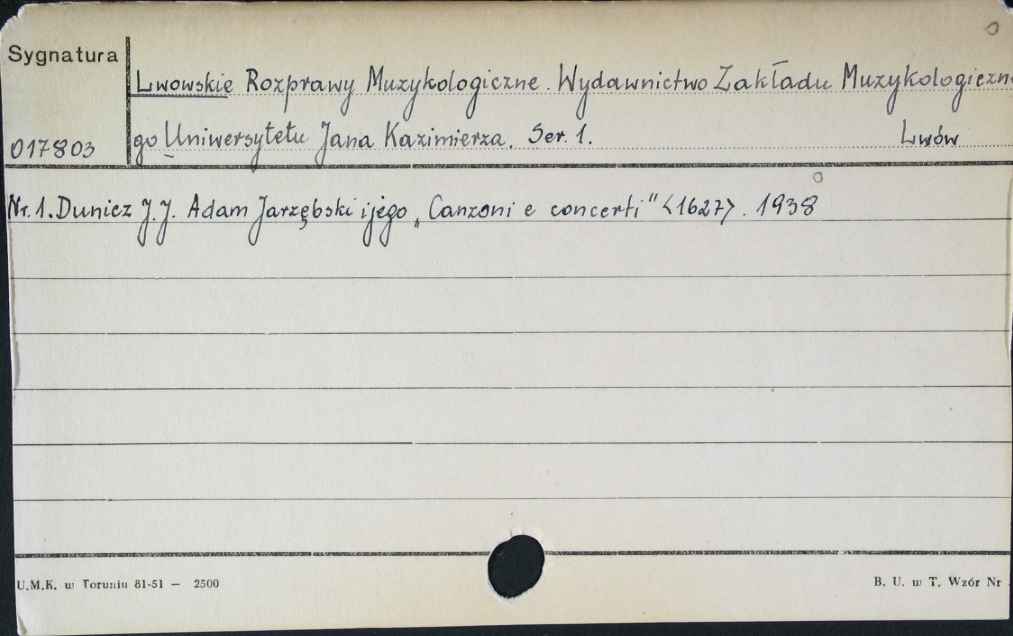 Sygnatura
Lwowskie Rozprawy Muzykologiczne. Wydawnictwo Zakładu Muzykologiczne
017803 go Uniwersytetu Jana Kazimierza. Ser. 1. Lwów
Nr. 1. Dunicz J. J. Adam Jarzębski i jego „Canzoni e concerti" <1627>. 1938
U.M.K. w Toruniu 81-51 — 2500 B. U. w T. Wzór Nr